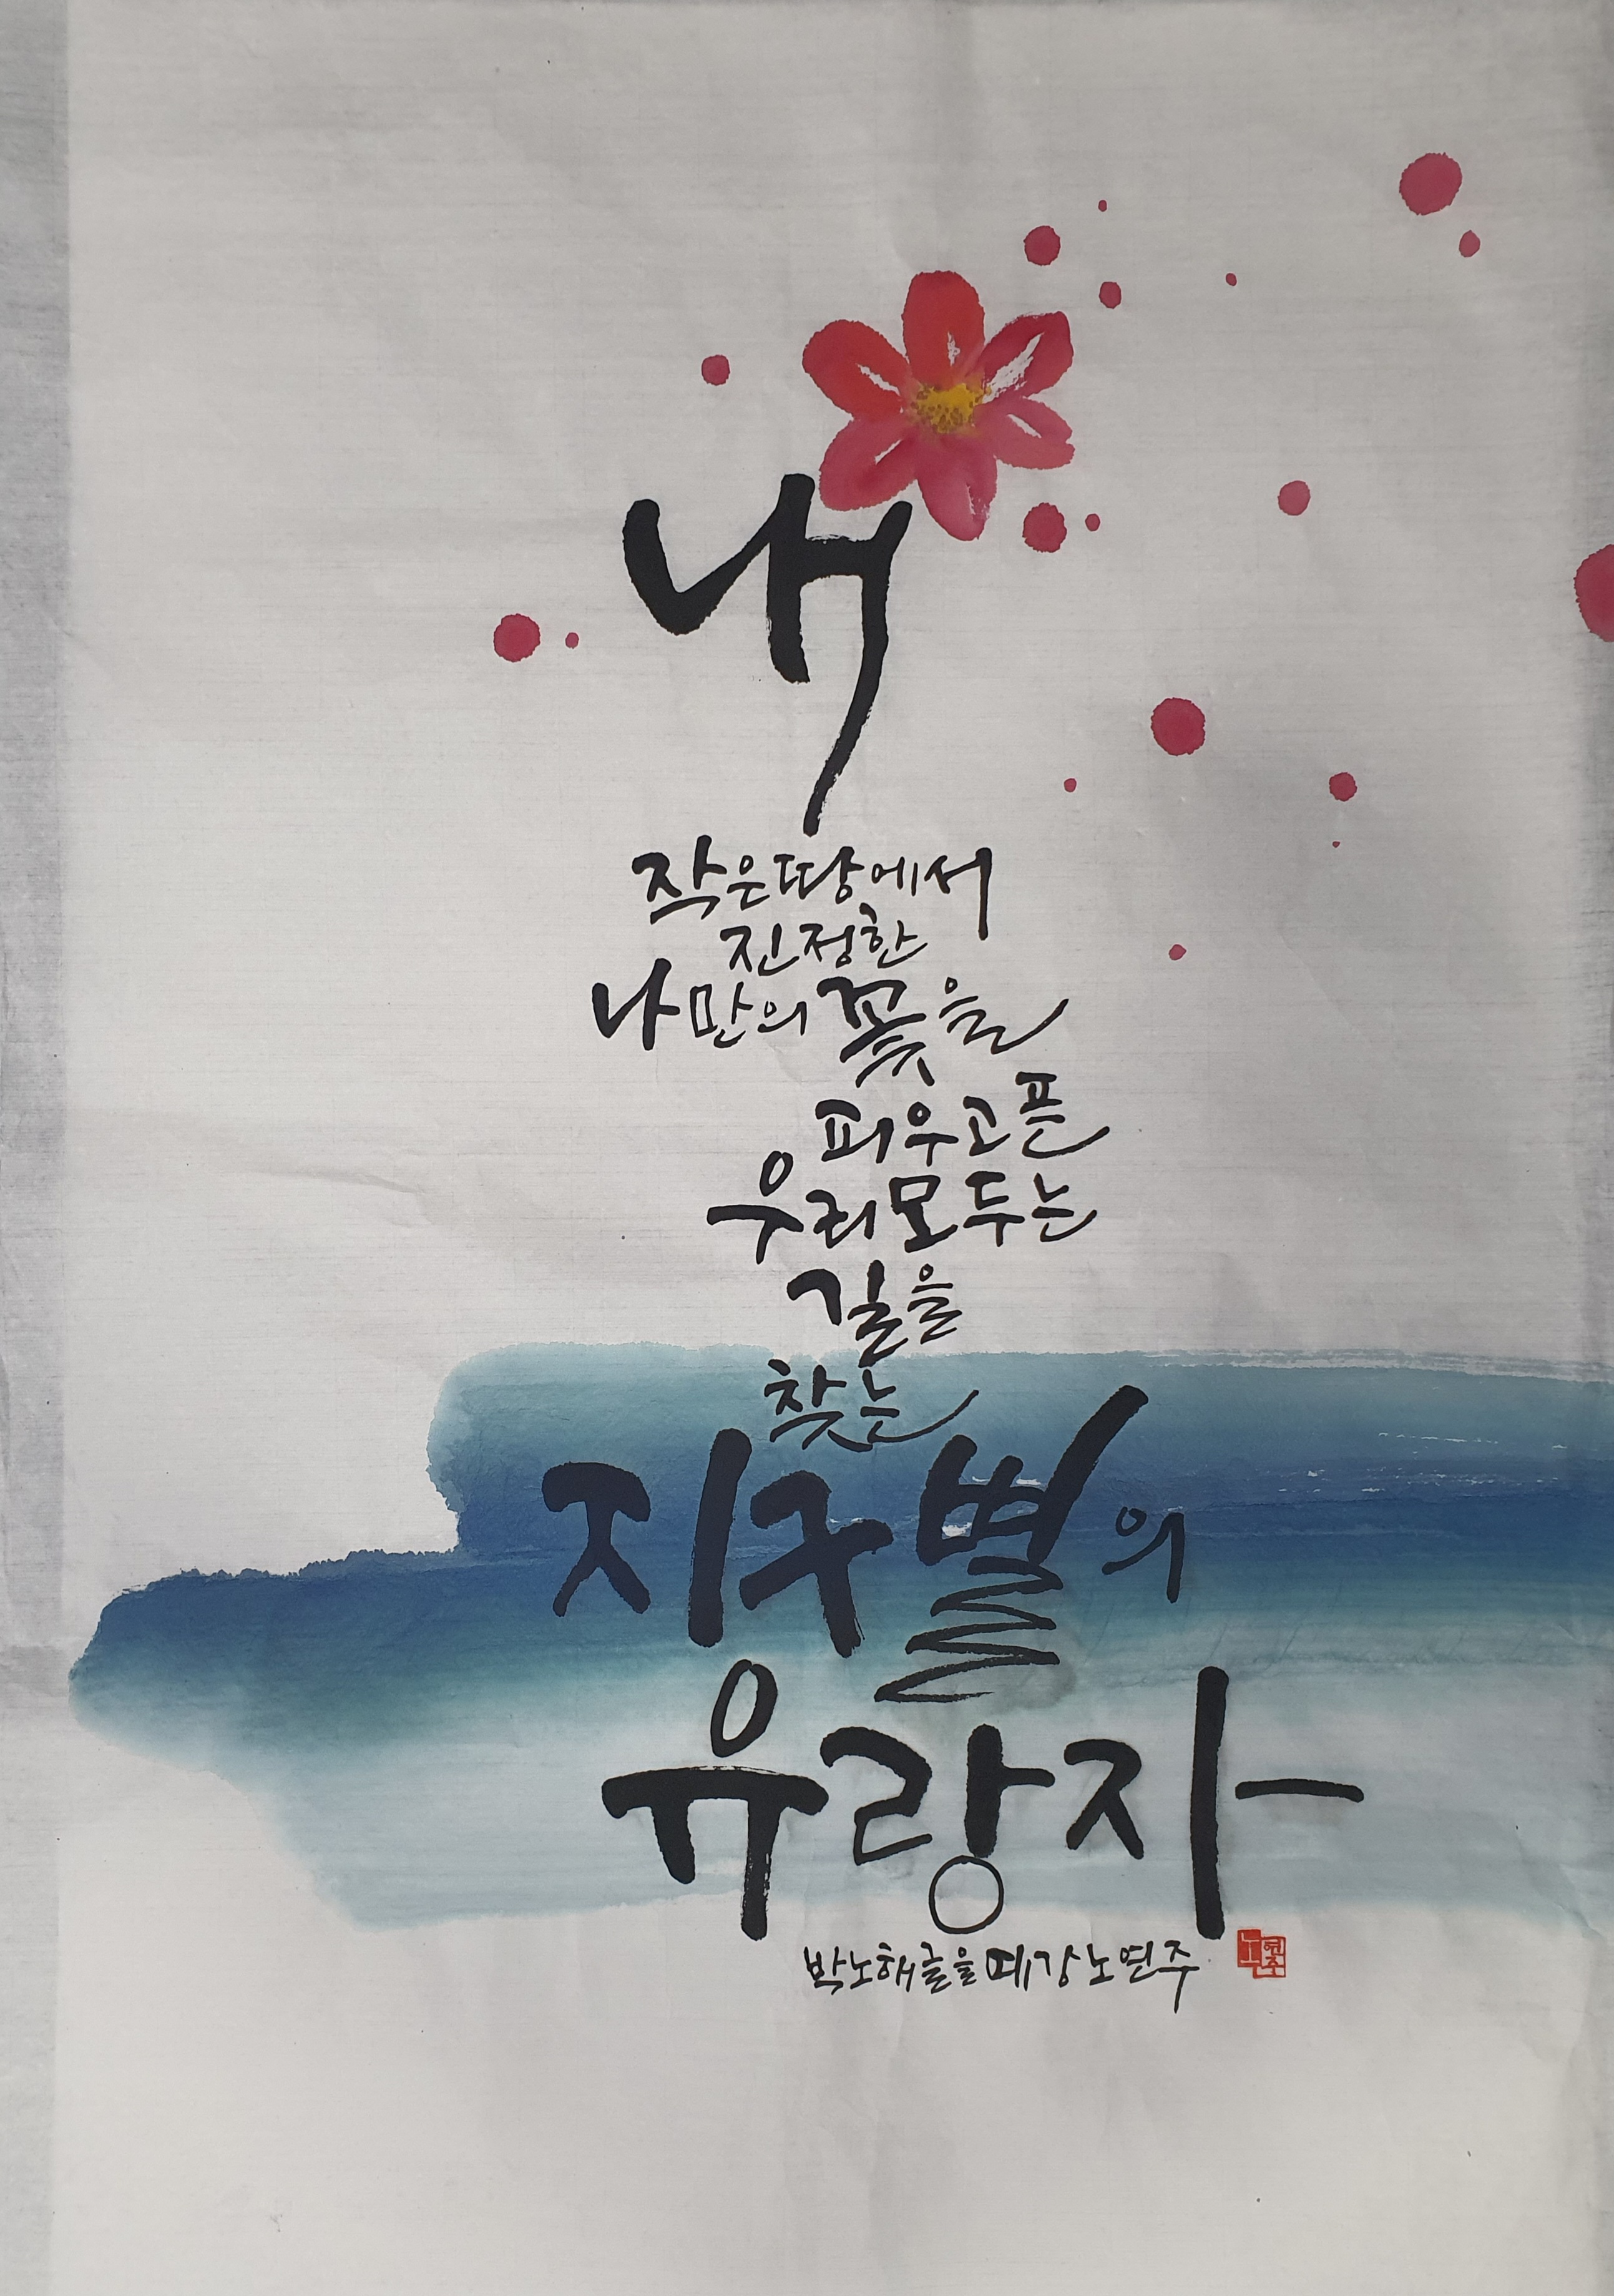 내
작은 땅에서
진정한
나만의 꽃을
피우고픈
우리 모두는
길을
찾는
지구별의
유랑자
박노해 글을 떼강 노연주
노연주